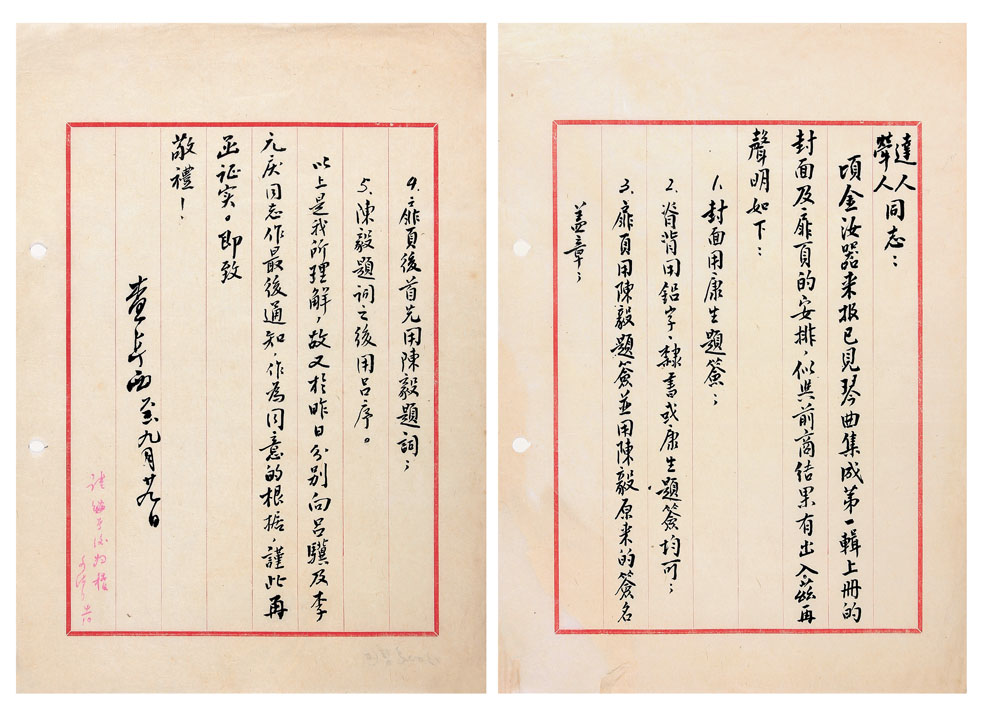 達人
犖人同志：
頃金汝器来报已見琴曲集成第一輯上冊的
封面及扉頁的安排，似與前商结果有出入茲再
聲明如下：
1. 封面用康生題簽；
2. 脊背用鉛字、隸書或康生題簽均可；
3. 扉頁用陳毅題簽並用陳毅原来的簽名
盖章；
4. 扉頁後首先用陳毅題詞；
5. 陳毅題詞之後用吕序。
以上是我所理解，故又於昨日分别向吕驥及李
元庆同志作最後通知，作為同意的根据，謹此再
函证实。即致
敬禮！
查阜西 九月廿九日